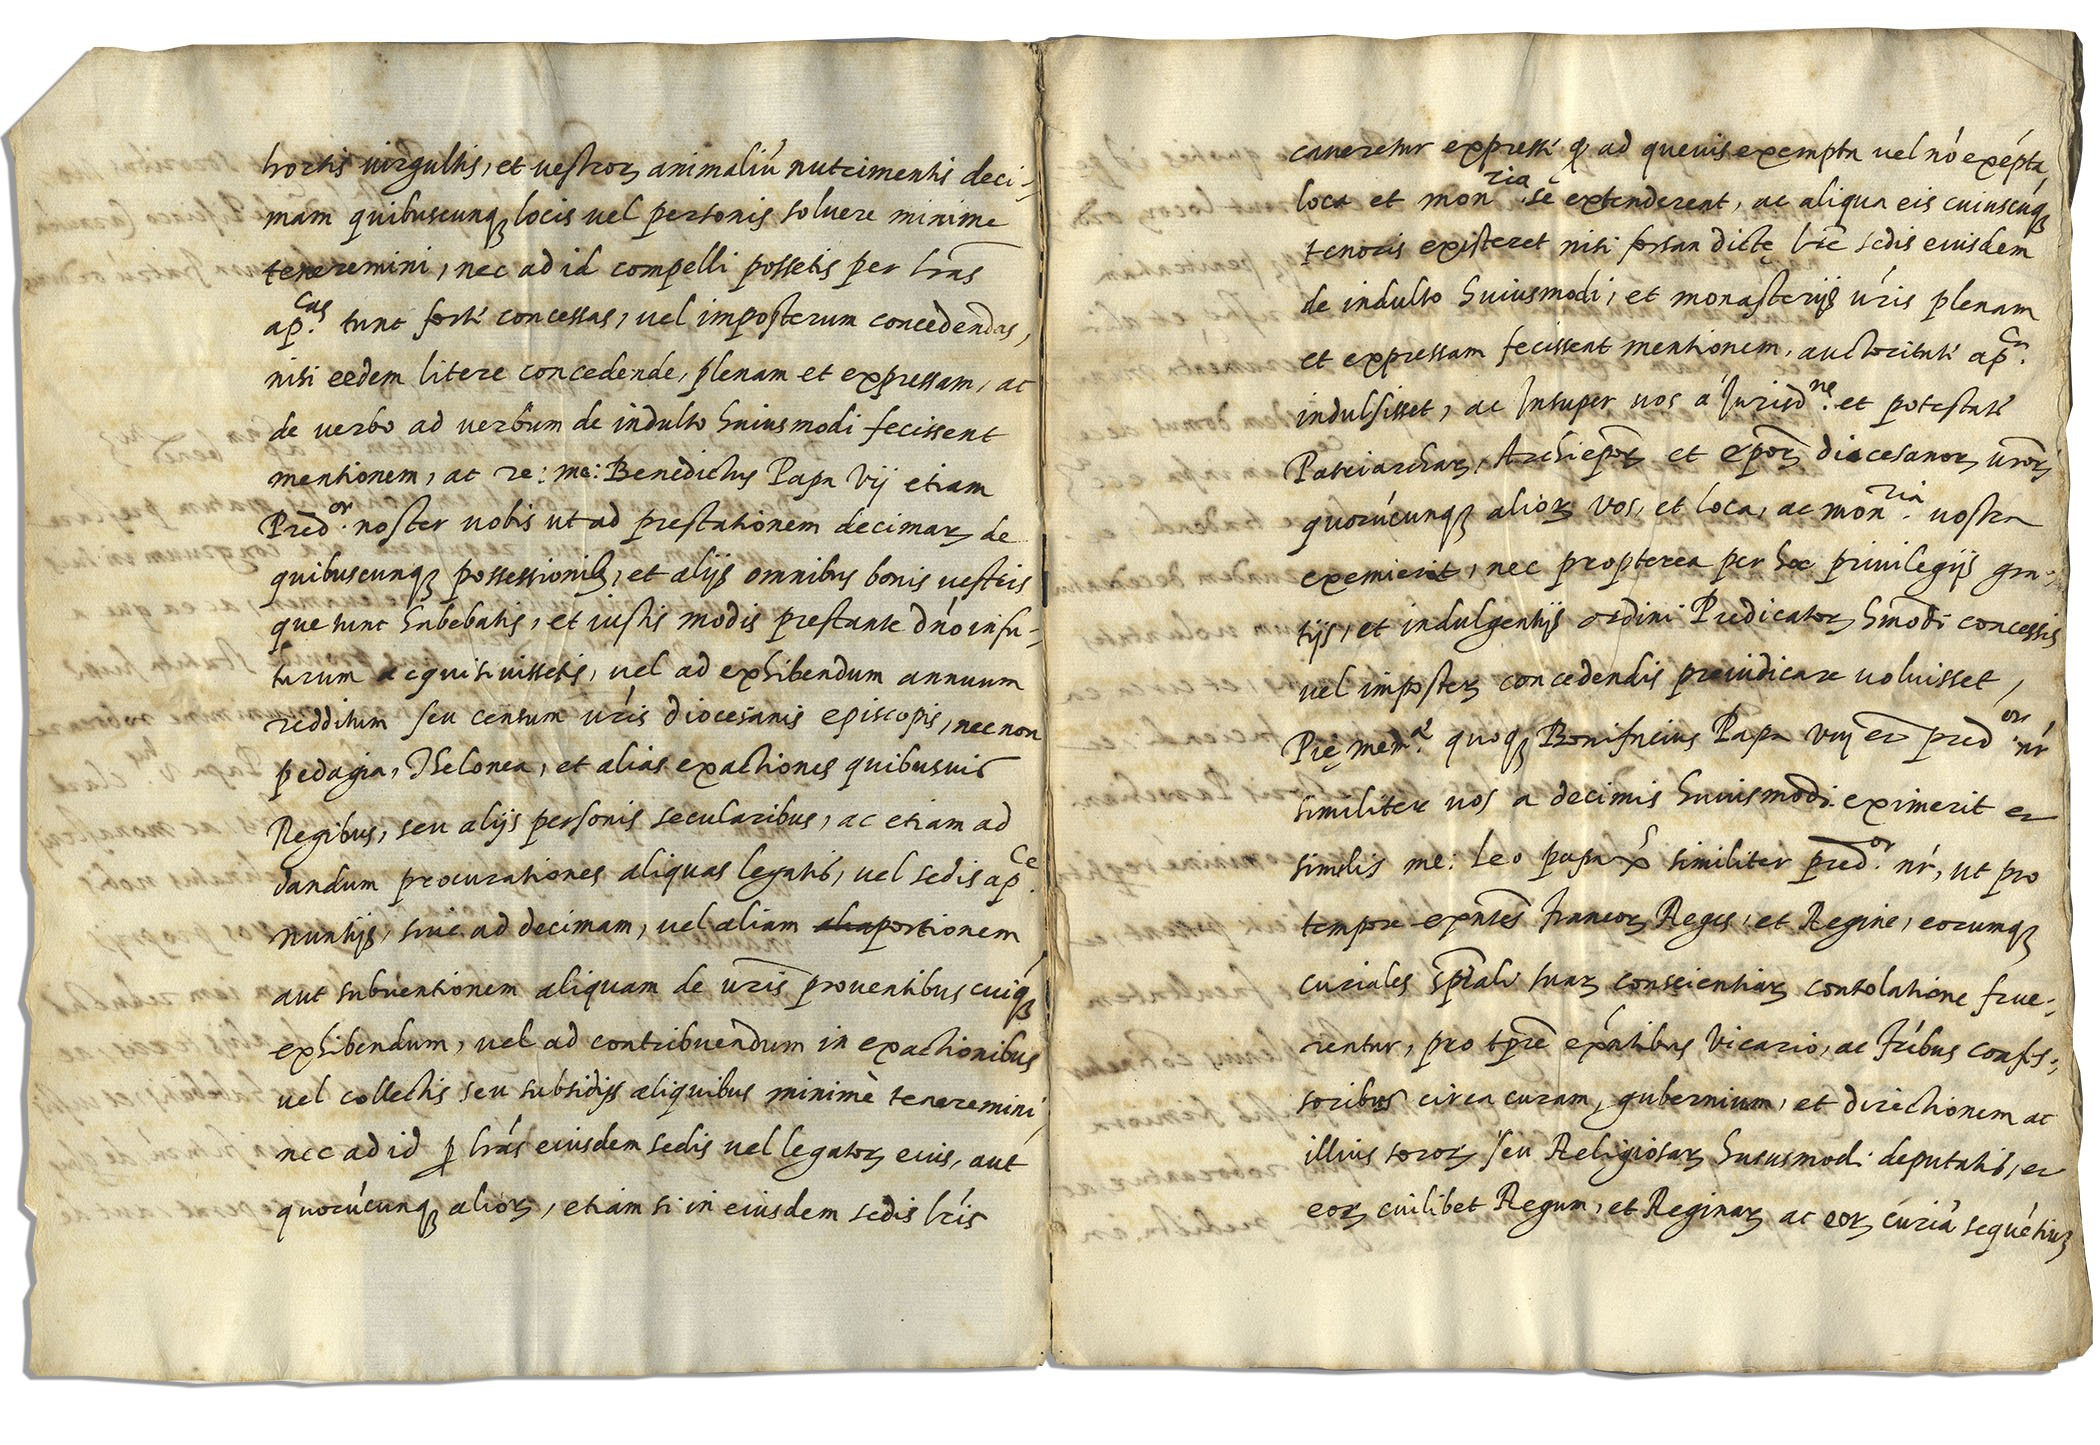 hortis uirgultis, et uestroꝝ animaliú nutrimentis deci-
mam quibuscunqꝫ locis uel personis soluere minime
teneremini, nec ad id compelli possetis per lr̃as
ap.cas tunc forté concessas, uel imposterum concedendas,
nisi eedem litere concedende, plenam et expressam, ac
de verbo ad verbum de indulto huiusmodi fecissent
mentionem, ac re: me: Benedictus Papa Vij etiam
Pred.or noster uobis ut ad prestationem decimaꝝ de
quibuscunqꝫ possessionibꝫ, et alijs omnibus bonis uestris
que tunc habebatis, et iustis modis prestante dńo infu-
turum acquisiuissetis, uel ad exhibendum annuum
redditum seu censum úris diocesanis episcopis, necnon
pedagia, Thelonea, et alias exactiones quibusuis
Regibus, seu alijs personis secularibus, ac etiam ad
dandum procurationes aliquas legatis, uel sedis ap.ce
nuntijs, siue ad decimam, uel aliam portionem
aut subuentionem aliquam de ur̃is prouentibus cuiqꝫ
exhibendum, uel ad contribuendum in exactionibus
uel collectis seu subsidijs aliquibus minimè teneremini,
nec ad id ꝑ lrás eiusdem sedis uel legatoꝝ eius, aut
quorúcunqꝫ alioꝝ, etiam si in eiusdem sedis lŕis
caueretur expressé ꝙ ad queuis exempta uel nó exépta
loca et mon.ria se extenderent, ac aliqua eis cuiuscúqꝫ
tenoris existeret nisi forsan dictę lr̃e sedis eiusdem
de indulto huiusmodi, et monasterijs úris plenam
et expressam fecissent mentionem, auctoritaté ap.ca
indulsisset, ac Insuper uos á Jurisd.ne et potestaté
Patriarchaꝝ, Archiepõꝝ et epõꝝ diocesanoꝝ ur̃oꝝ
quorúcunqꝫ alioꝝ vos, et loca, ac mon.ria uostra
exemierit, nec propterea per hoc priuilegijs gra-
tijs, et indulgentijs ordini Predicatoꝝ hm̃odi concessis
uel imposteꝝ concedendis preiudicare uoluisset,
Pię mem.e quoqꝫ Bonifacius Papa viij et pred.or nŕ
similiter uos a decimis huiusmodi eximerit et
similis me: Leo papa x similiter pred.or nŕ, ut pro
tempore exñtes francoꝝ Reges, et Regine, eorumqꝫ
curiales sp̃tali suaꝝ conscientiaꝝ consolatione frue-
rentur, pro tp̃re exńtibus Vicario, ac fríbus confes-
soribus circa curam, gubernium, et directionem ac
illius soroꝝ seu Religiosaꝝ huiusmodi deputatis, et
eoꝝ cuilibet Regum, et Reginaꝝ ac eoꝝ curiá sequétiuꝫ